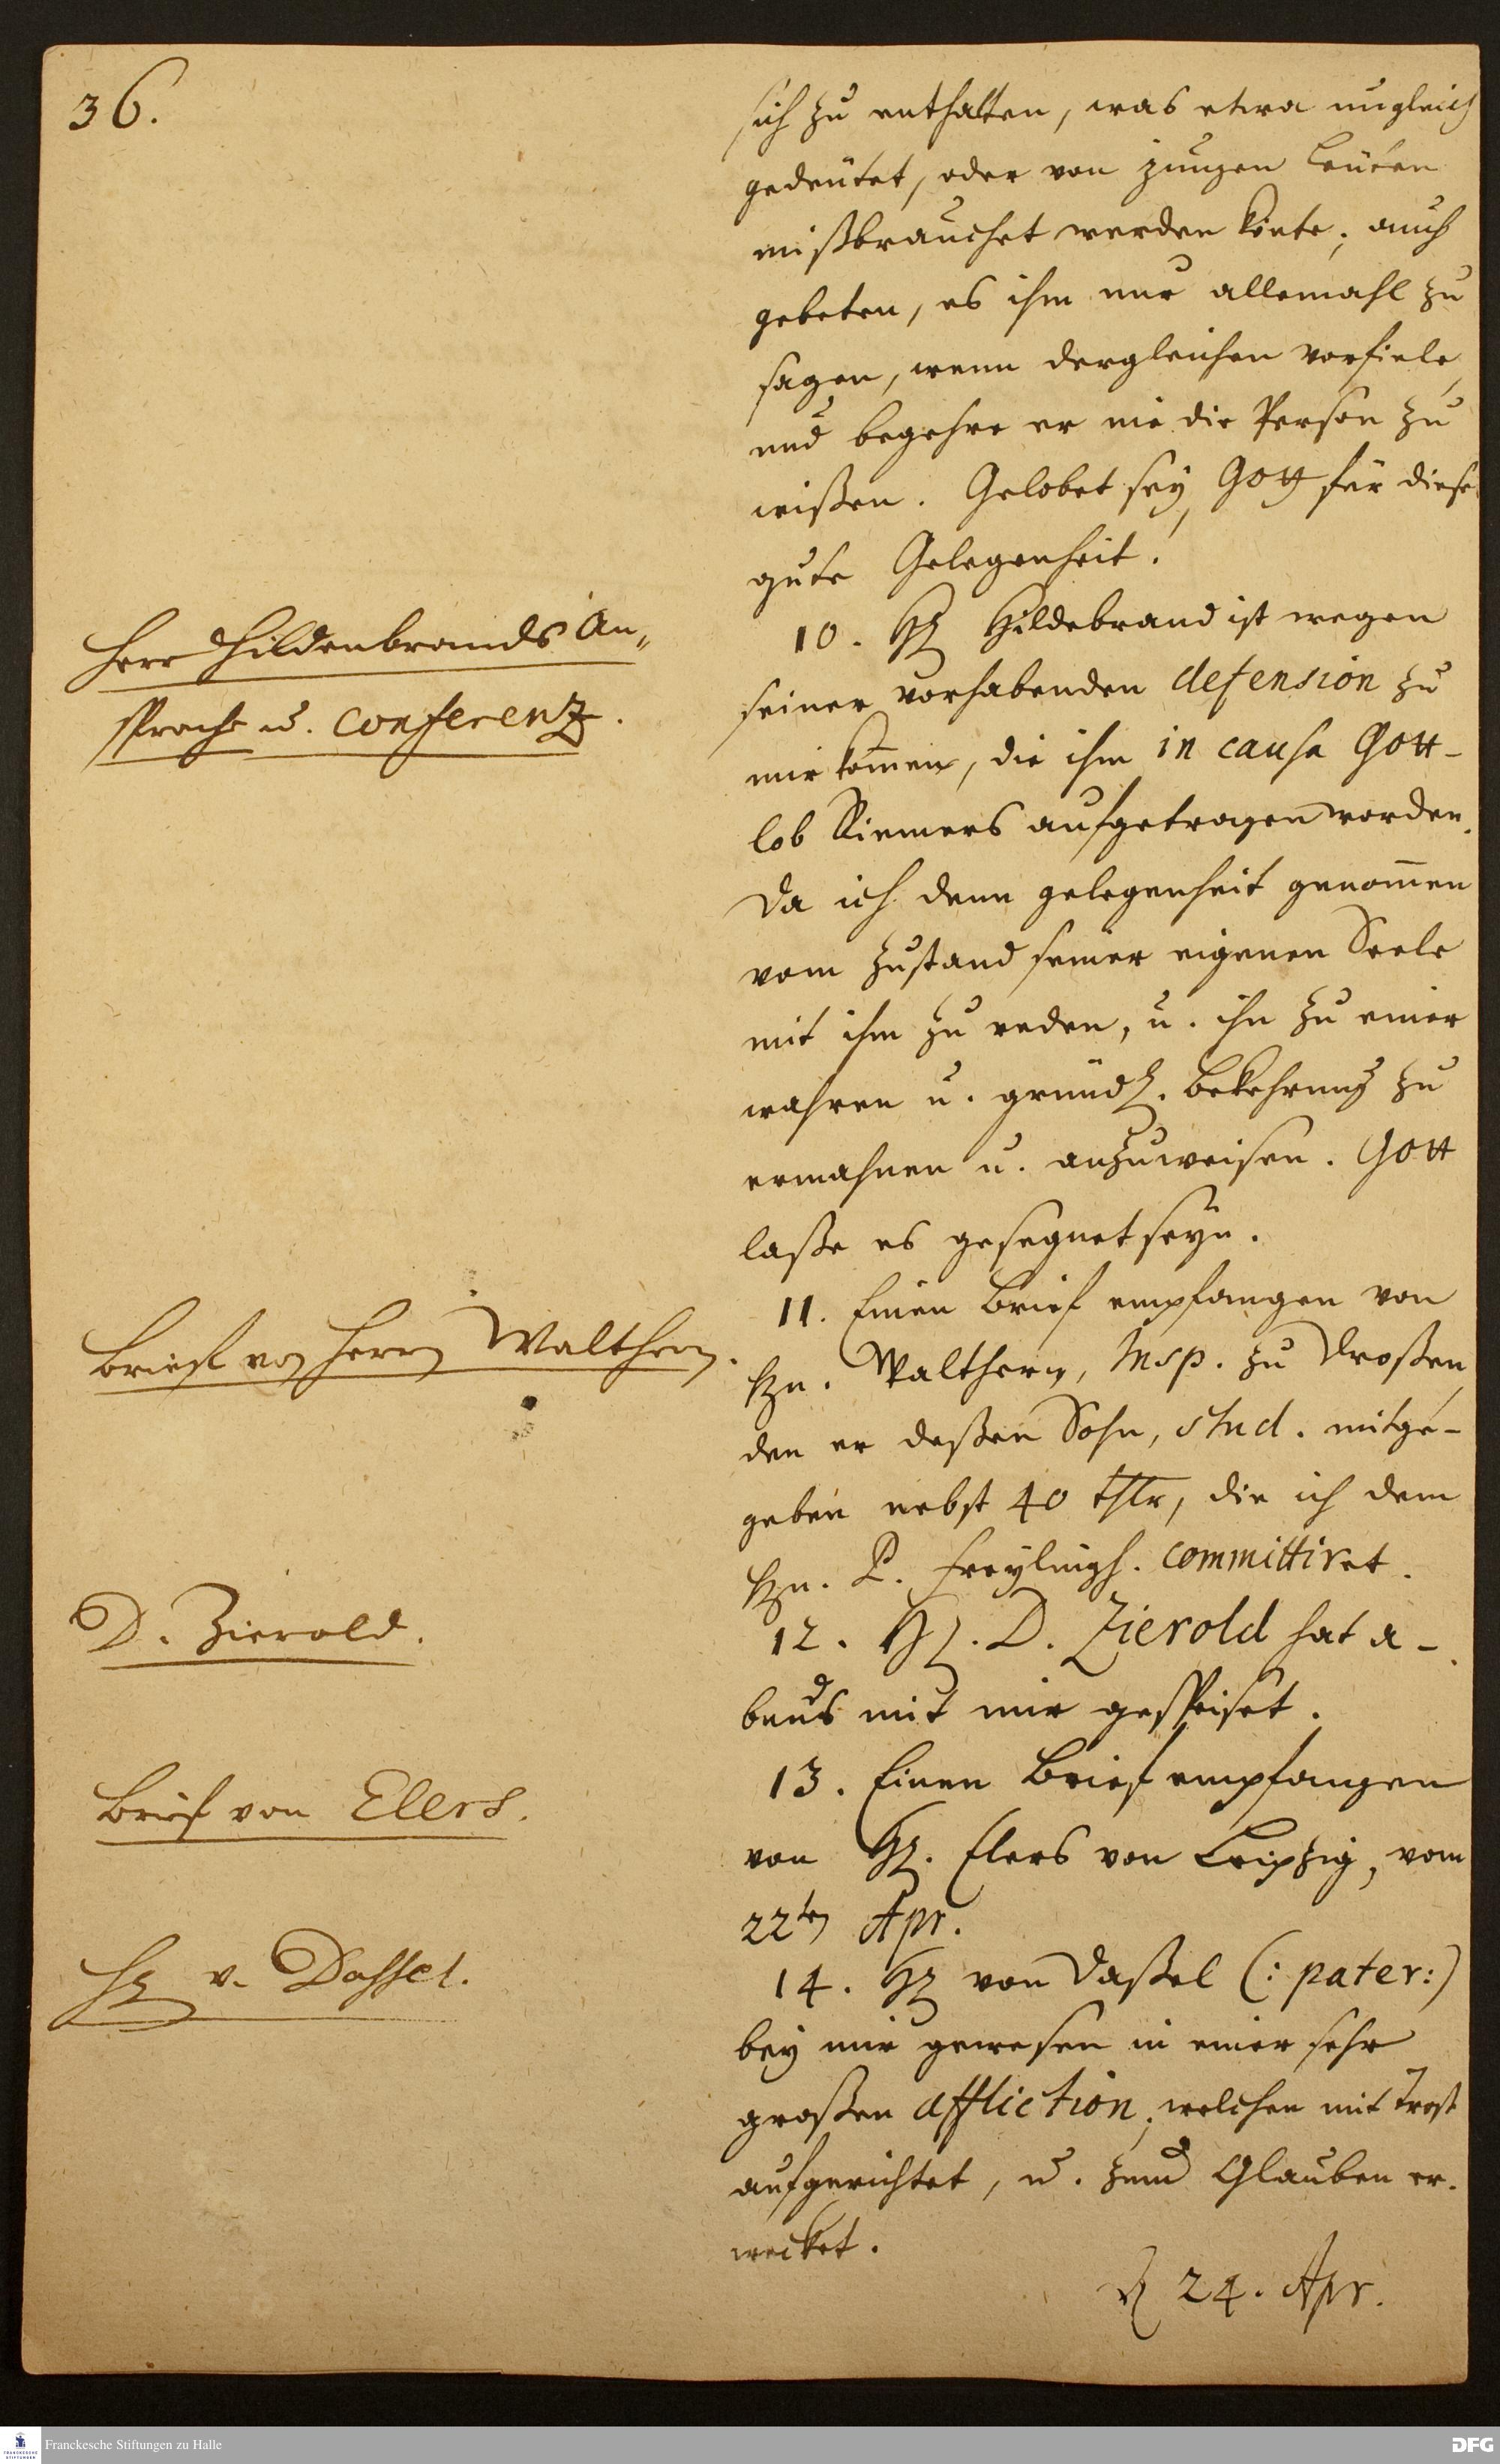 36.
sich zu enthalten, was etwa ungleich
gedeutet, oder von jungen Leuten
mißbrauchet werden köñte; auch
gebeten, es ihm nur allemahl zu
sagen, wenn dergleichen vorfiele,
und begehre er nie die Person zu
wißen. Gelobet sey Gott für diese
gute Gelegenheit.
Herr Hildenbrands An„
sprache u. Conferenz.
10. Hr Hildebrand ist wegen
seiner vorhabenden defension zu
mir kom̃en, die ihm in causa Gott-
lob Riemers aufgetragen worden.
Da ich denn gelegenheit genom̃en
vom Zustand seiner eigenen Seele
mit ihm zu reden, u. ihn zu einer
wahren u. gründl. Bekehrung zu
ermahnen u. anzuweisen. Gott
laße es gesegnet seyn.
Brieff von Herrn Walthern.
11. Einen Brief empfangen von
Hn. Walthern, Insp. zu Droßen,
den er deßen Sohn, stud. mitge-
geben nebst 40 thlr, die ich dem
Hn. P. Freylingh. committiret.
D. Zierold.
12. Hr. D. Zierold hat a-
bends mit mir gespeiset.
Brief von Elers.
13. Einen Brief empfangen
von Hr. Elers von Leipzig, vom
22ten Apr.
Hr v. Dassel.
14. Hr von Daßel (: pater:)
bey mir gewesen in einer sehr
großen affliction, welchen mit Trost
aufgerichtet, u. zum Glauben er-
wecket.
24. Apr.
Franckesche Stiftungen zu Halle
FRANCKESCHE STIFTUNGEN
DFG